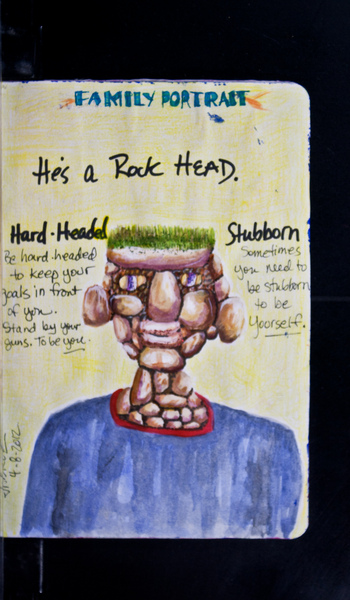 FAMILY PORTRAIT
He's a Rock HEAD.
Hard-Headed
Be hard-headed
to keep your
goals in front
of you.
Stand by your
guns. To be you.
Stubborn
Sometimes
you need to
be stubborn
to be
Yoorself.
4-8-2012